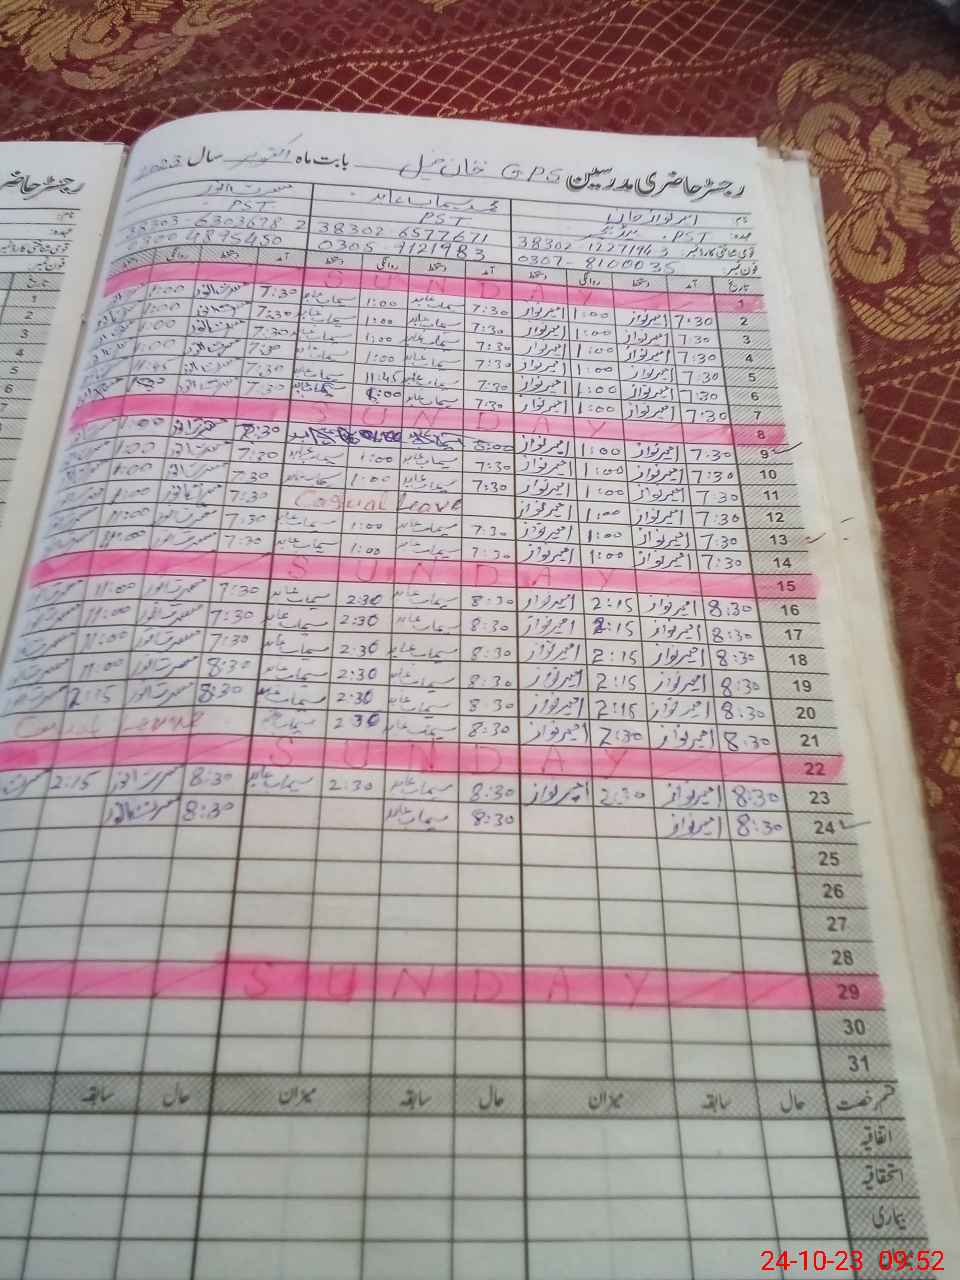 رجسٹر حاضری مدرسین GPS خان خیل بابت ماہ اکتوبر سال 2023
نام امیر نواز خان محمد سیماب عابد مسرت انور
عہدہ PST PST PST
قومی شناختی کارڈ نمبر 38302-1227194-5 38302-6577671 38303-6303678 2
فون نمبر 0307-8100035 0305-9121983 0300 4895450
تاریخ آمد دستخط روانگی دستخط آمد دستخط روانگی دستخط آمد دستخط روانگی
1 SUNDAY
2 7:30 امیرنواز 1:00 امیرنواز 7:30 سیماب عابد 1:00 سیماب عابد 7:30 مسرت انور 1:00
3 7:30 امیرنواز 1:00 امیرنواز 7:30 سیماب عابد 1:00 سیماب عابد 7:30 مسرت انور 1:00
4 7:30 امیرنواز 1:00 امیرنواز 7:30 سیماب عابد 1:00 سیماب عابد 7:30 مسرت انور 1:00
5 7:30 امیرنواز 1:00 امیرنواز 7:30 سیماب عابد 1:00 سیماب عابد 7:30 مسرت انور 1:00
6 7:30 امیرنواز 1:00 امیرنواز 7:30 سیماب عابد 11:45 سیماب عابد 7:30 مسرت انور 11:45
7 7:30 امیرنواز 1:00 امیرنواز 7:30 سیماب عابد 1:00 سیماب عابد 7:30 مسرت انور
8 SUNDAY
9 7:30 امیرنواز 1:00 امیرنواز 8:00 7:30 مسرت انور 1:00
10 7:30 امیرنواز 1:00 امیرنواز 7:30 سیماب عابد 1:00 سیماب عابد 7:30 مسرت انور 1:00
11 7:30 امیرنواز 1:00 امیرنواز 7:30 سیماب عابد 1:00 سیماب عابد 7:30 مسرت انور 1:00
12 7:30 امیرنواز 1:00 امیرنواز Casual Leave 7:30 مسرت انور 1:00
13 7:30 امیرنواز 1:00 امیرنواز 7:30 سیماب عابد 1:00 سیماب عابد 7:30 مسرت انور
14 7:30 امیرنواز 1:00 امیرنواز 7:30 سیماب عابد 1:00 سیماب عابد 7:30 مسرت انور
15 SUNDAY
16 8:30 امیرنواز 2:15 امیرنواز 8:30 سیماب عابد 2:30 سیماب عابد 7:30 مسرت انور 11:00
17 8:30 امیرنواز 2:15 امیرنواز 8:30 سیماب عابد 2:30 سیماب عابد 7:30 مسرت انور 11:00
18 8:30 امیرنواز 2:15 امیرنواز 8:30 سیماب عابد 2:30 سیماب عابد 7:30 مسرت انور 11:00
19 8:30 امیرنواز 2:15 امیرنواز 8:30 سیماب عابد 2:30 سیماب عابد 8:30 مسرت انور 11:00
20 8:30 امیرنواز 2:15 امیرنواز 8:30 سیماب عابد 2:30 سیماب عابد 8:30 مسرت انور 2:15
21 8:30 امیرنواز 2:30 امیرنواز 8:30 سیماب عابد 2:30 سیماب عابد Casual Leave
22 SUNDAY
23 8:30 امیرنواز 2:30 امیرنواز 8:30 سیماب عابد 2:30 سیماب عابد 8:30 مسرت انور 2:15
24 8:30 امیرنواز 8:30 سیماب عابد 8:30 مسرت انور
25
26
27
28
29 SUNDAY
30
31
قسم رخصت حال سابقہ میزان حال سابقہ میزان حال سابقہ
اتفاقیہ
استحقاقیہ
بیماری
24-10-23 09:52